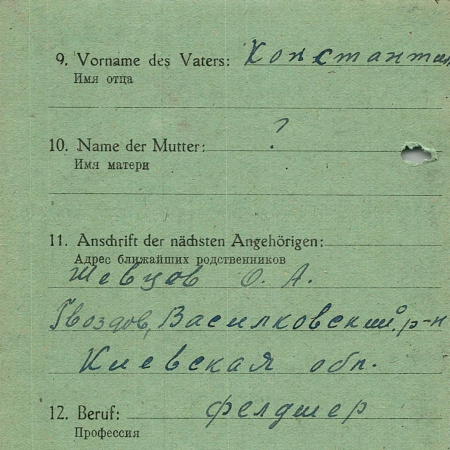 9. Vorname des Vaters: Константин
Имя отца
10. Name der Mutter: ?
Имя матери
11. Anschrift der nächsten Angehörigen:
Адрес ближайших родственников
Шевцов О. А.
Гвоздов, Василковский р-н
Киевская обл.
12. Beruf: фелдшер
Профессия